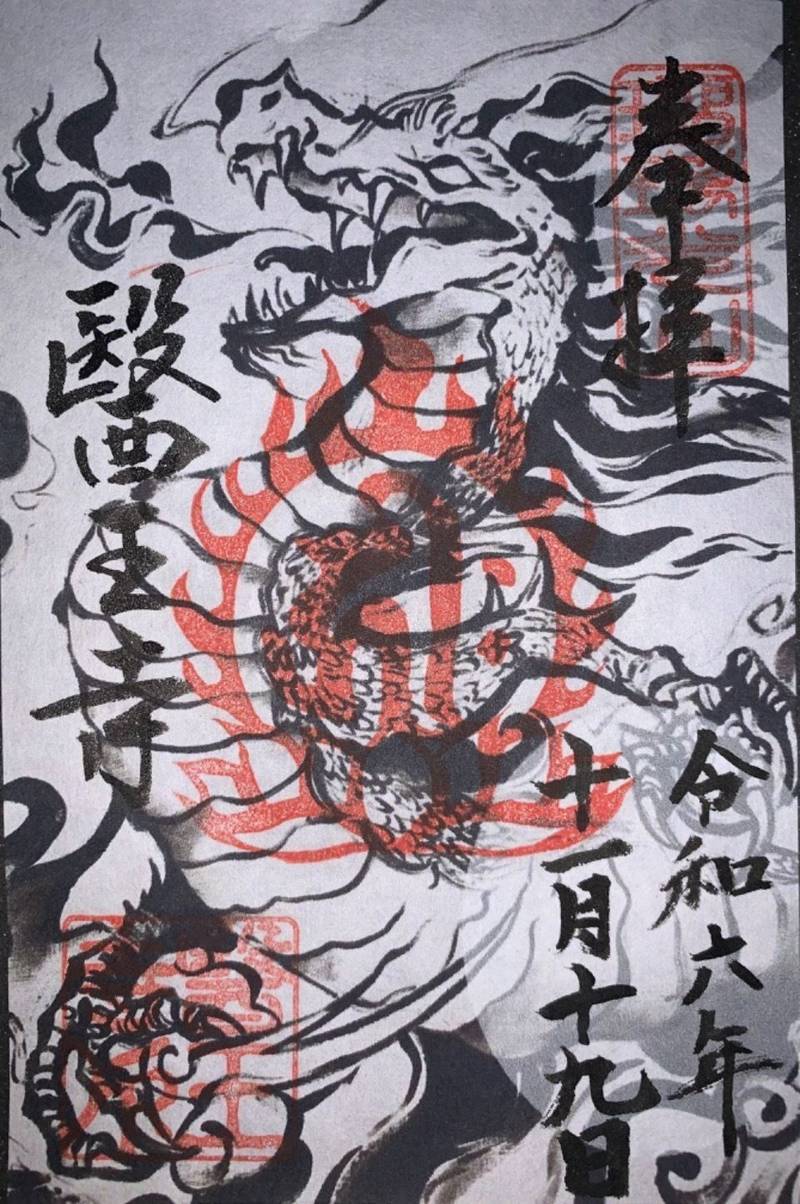 奉拝
令和六年
十一月十九日
醫王寺